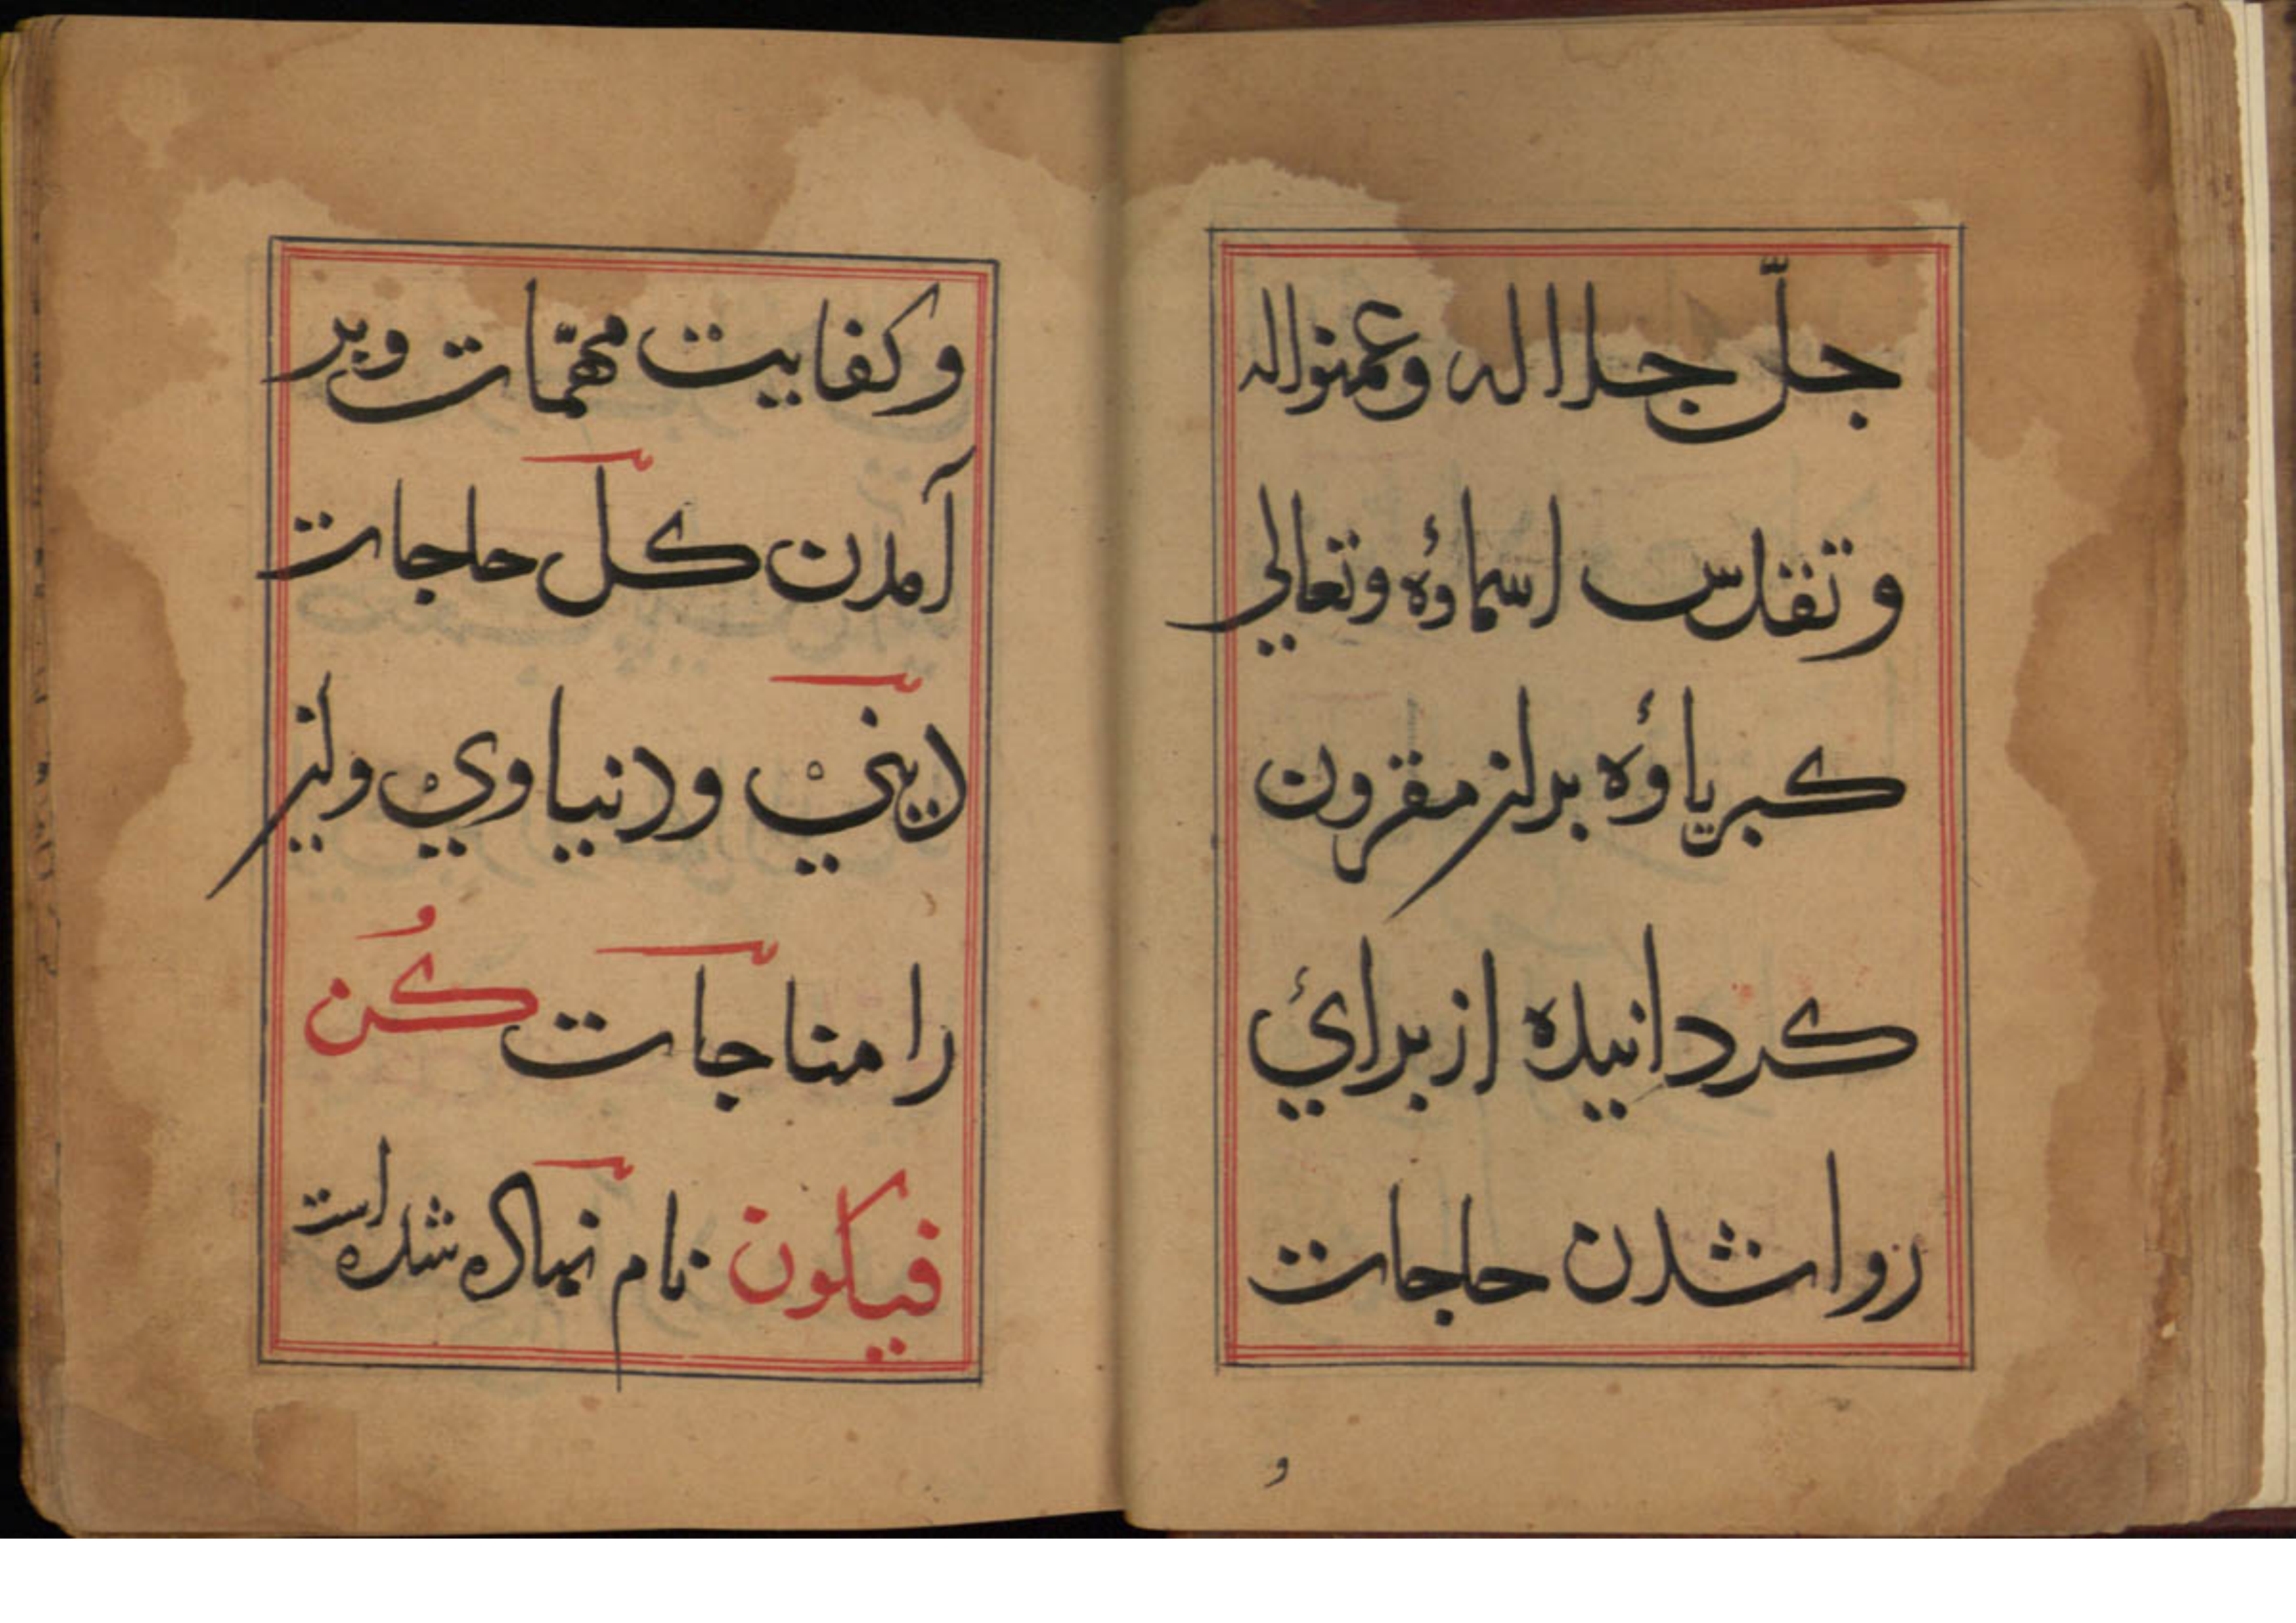 جلّ جلاله وعمنواله
وتقدس اسماؤه وتعالي
كبرياؤه بدانز مقرون
كردانيده از برائ
روا شدن حاجات
و
وكفايت مهمّات وبر
آمدن كلّ حاجات
ديني ودنياوي واين
را مناجات كُن
فيكون نام نهاده شده است